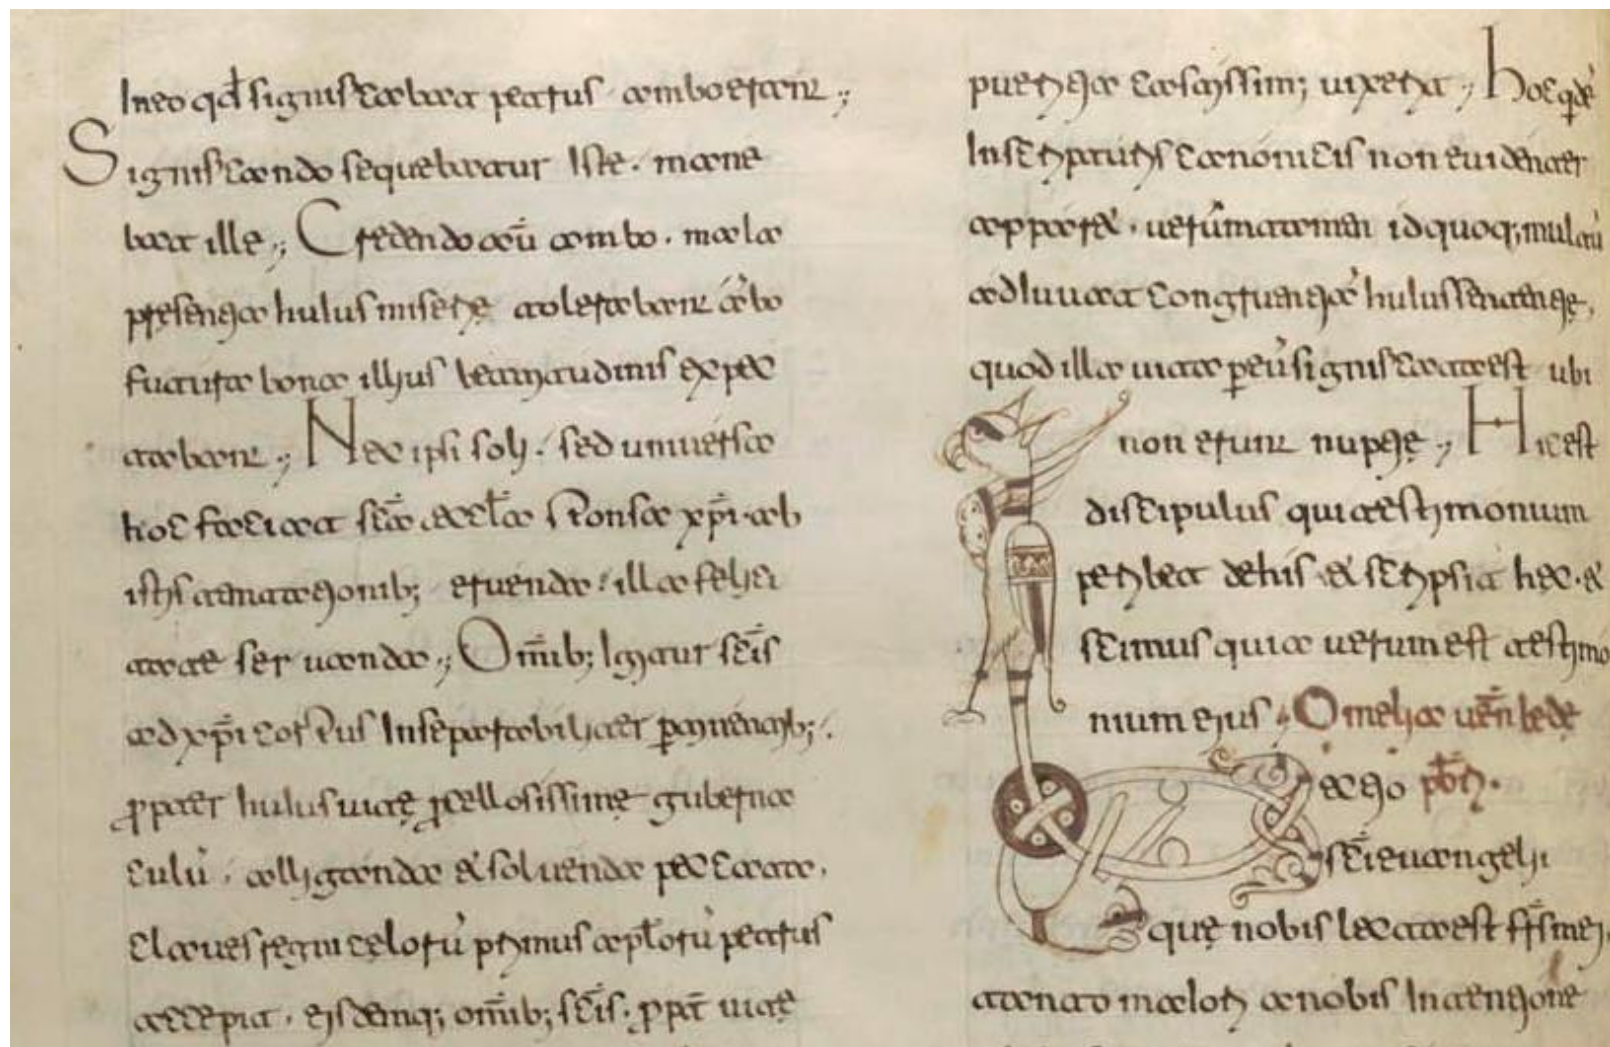 In eo qd̄ significabat petrus ambo erant ;
Significando sequebatur iste. mane
bat ille ; Credendo aū ambo. mala
presentia huius miserię tolerabant ābo
futura bona illius beatitudinis expec
tabant ; Nec ipsi soli. sed universa
hoc faciat scā eccłā sponsa xp̄i. ab
istis temtationib; eruenda. illa felici
tate servanda ; Om̄ib; Igitur scīs
ad xp̄i corpus Inseparabiliter ptinentib; .
ppter huius vitę pcellosissimę guberna
culū. alliganda et solvenda peccata.
Claves regni cęlorū primus apłorū petrus
accepit. eisdemq; om̄ib; scīs. ppt̄ vitę
pueritia castissim; vixerit ; hoc qdē
In scripturis canonicis non evidenter
apparet. verūtamen id quoq; multū
adIuvat congruentia huius sententię,
quod illa vita p eū significata est ubi
non erunt nuptię ; Hic est
discipulus qui testimonium
perhibet de his et scripsit hęc. et
scimus quia verum est testimo
nium eius. Omelia vēn bedę
Lectio pb̄ri.
scī evangelii
quę nobis lecta est fr̄s mei.
tanto maiori a nobis Intentione